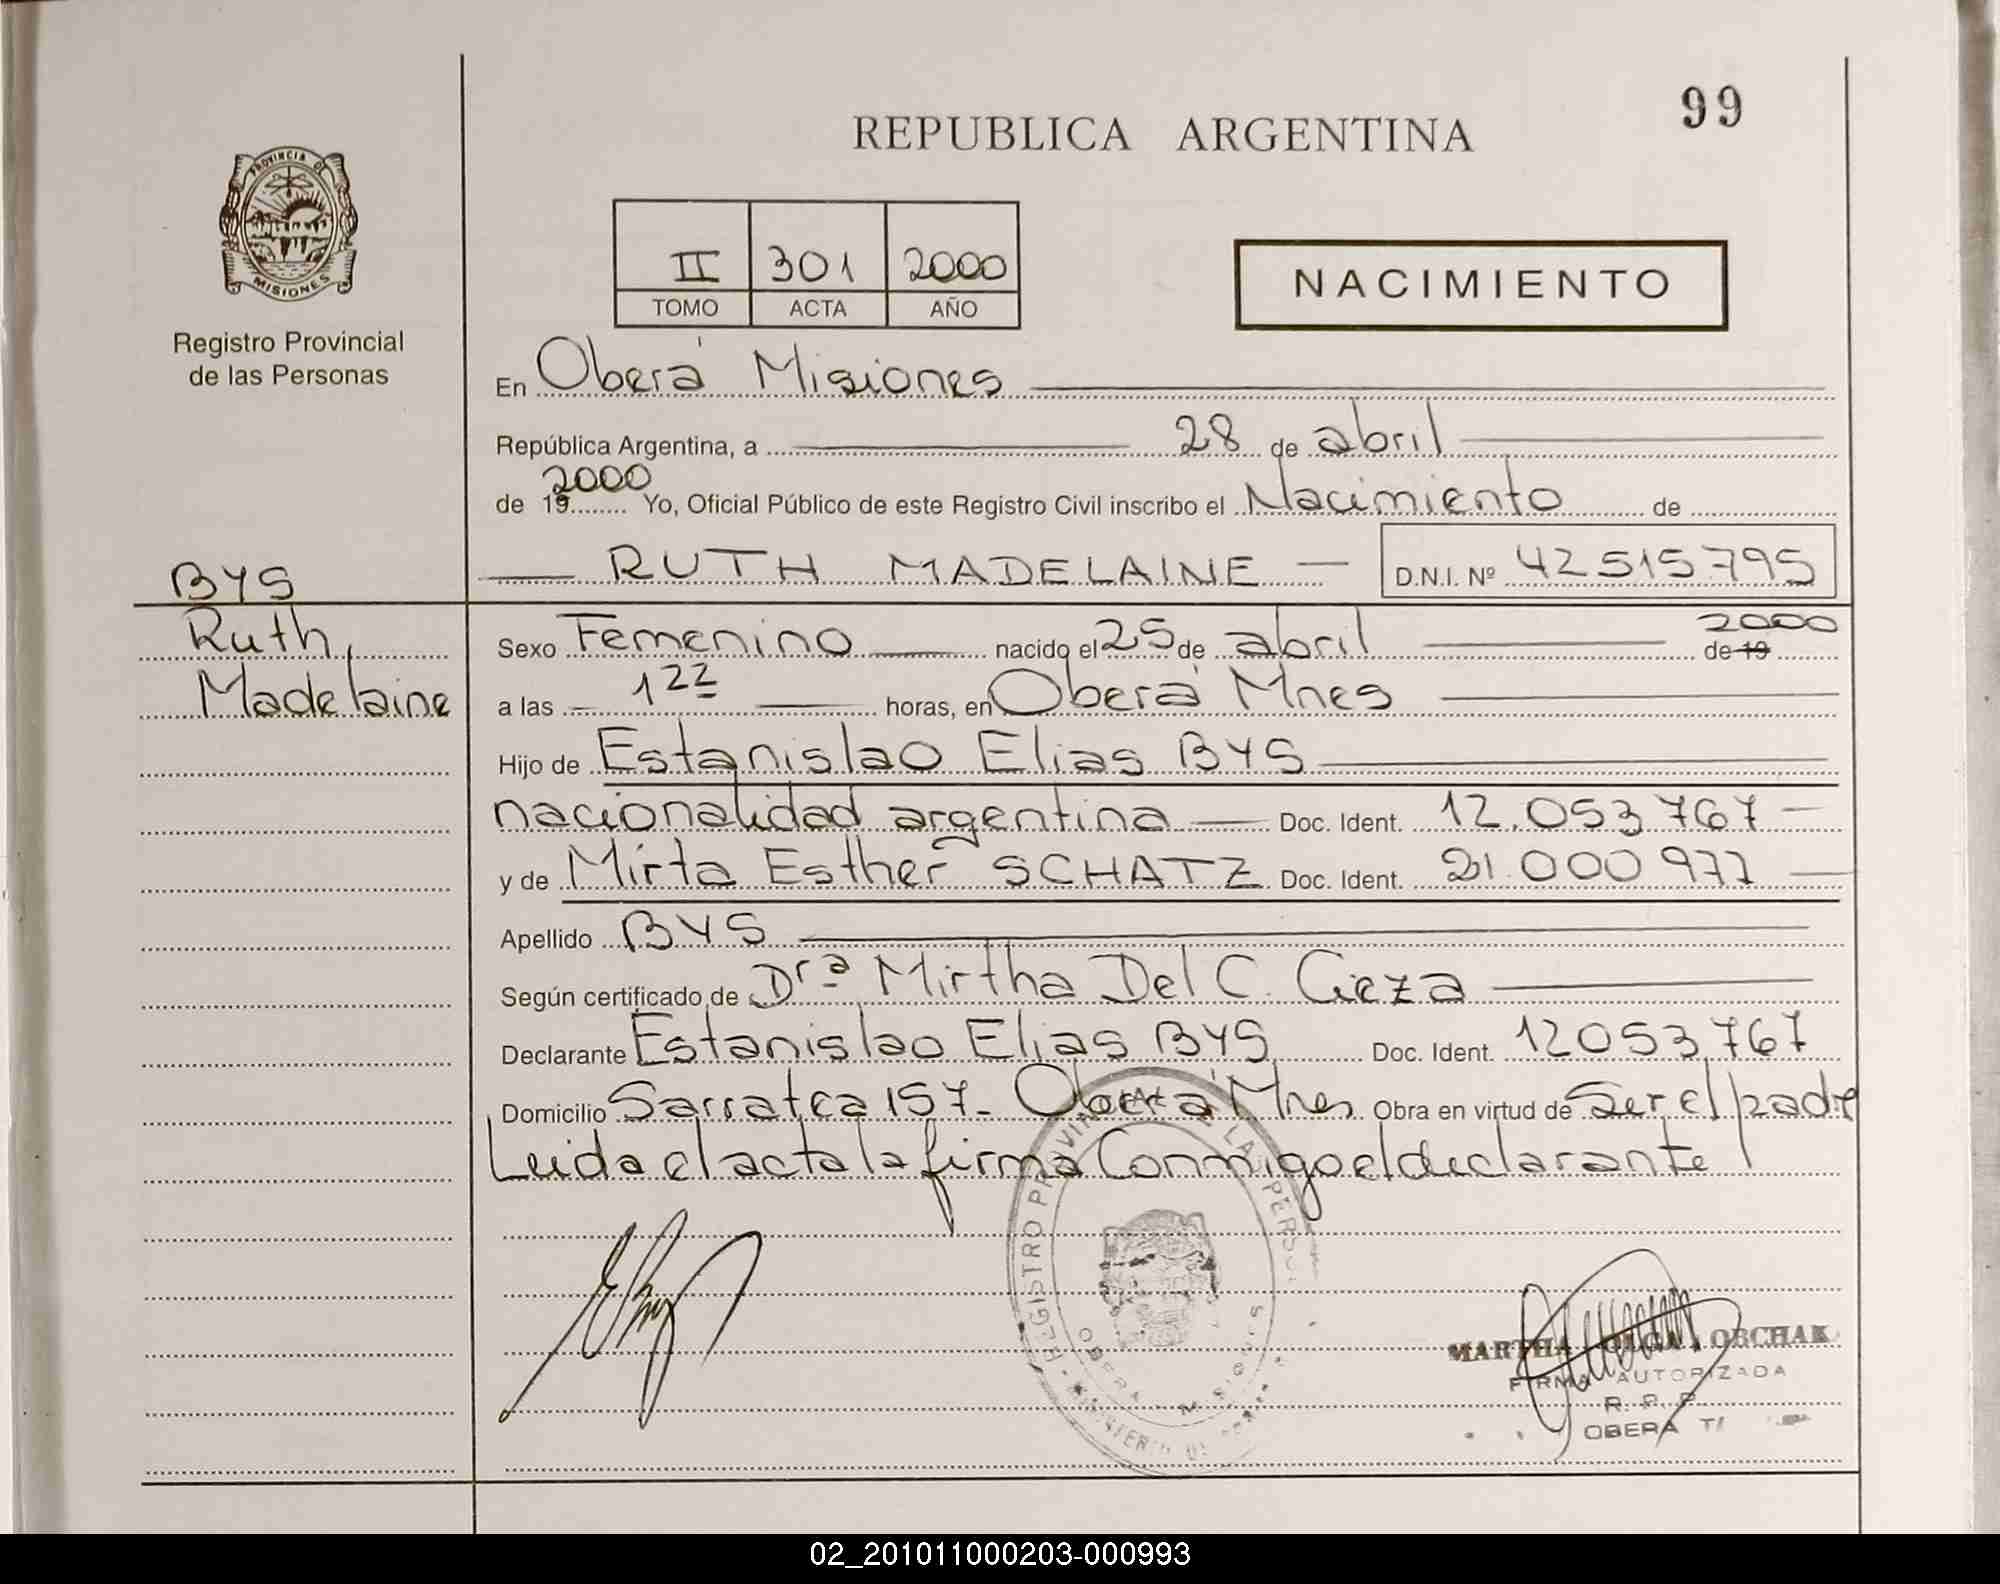 99
REPUBLICA ARGENTINA
PROVINCIA DE
MISIONES
Registro Provincial
de las Personas
II 301 2000
TOMO ACTA AÑO
NACIMIENTO
En Oberá Misiones
República Argentina, a 28 de abril
2000
de 19 Yo, Oficial Público de este Registro Civil inscribo el Nacimiento de
RUTH MADELAINE D.N.I. Nº 42515795
BYS
Ruth,
Madelaine
Sexo Femenino nacido el 25 de abril de 19 2000
a las 1 22 horas, en Oberá Mnes
Hijo de Estanislao Elias BYS
nacionalidad argentina Doc. Ident. 12.053767
y de Mirta Esther SCHATZ Doc. Ident. 21.000977
Apellido BYS
Según certificado de Drª Mirtha Del C. Cieza
Declarante Estanislao Elias BYS Doc. Ident. 12053767
Domicilio Sarratea 157- Oberá Mnes Obra en virtud de Ser el padre
Leida el acta la firma Conmigo el declarante
REGISTRO PROVINCIAL DE LA
OBERA MISIONES
MARTHA OLGA OBCHAK
FIRMA AUTORIZADA
R. P. P.
OBERA
02_201011000203-000993